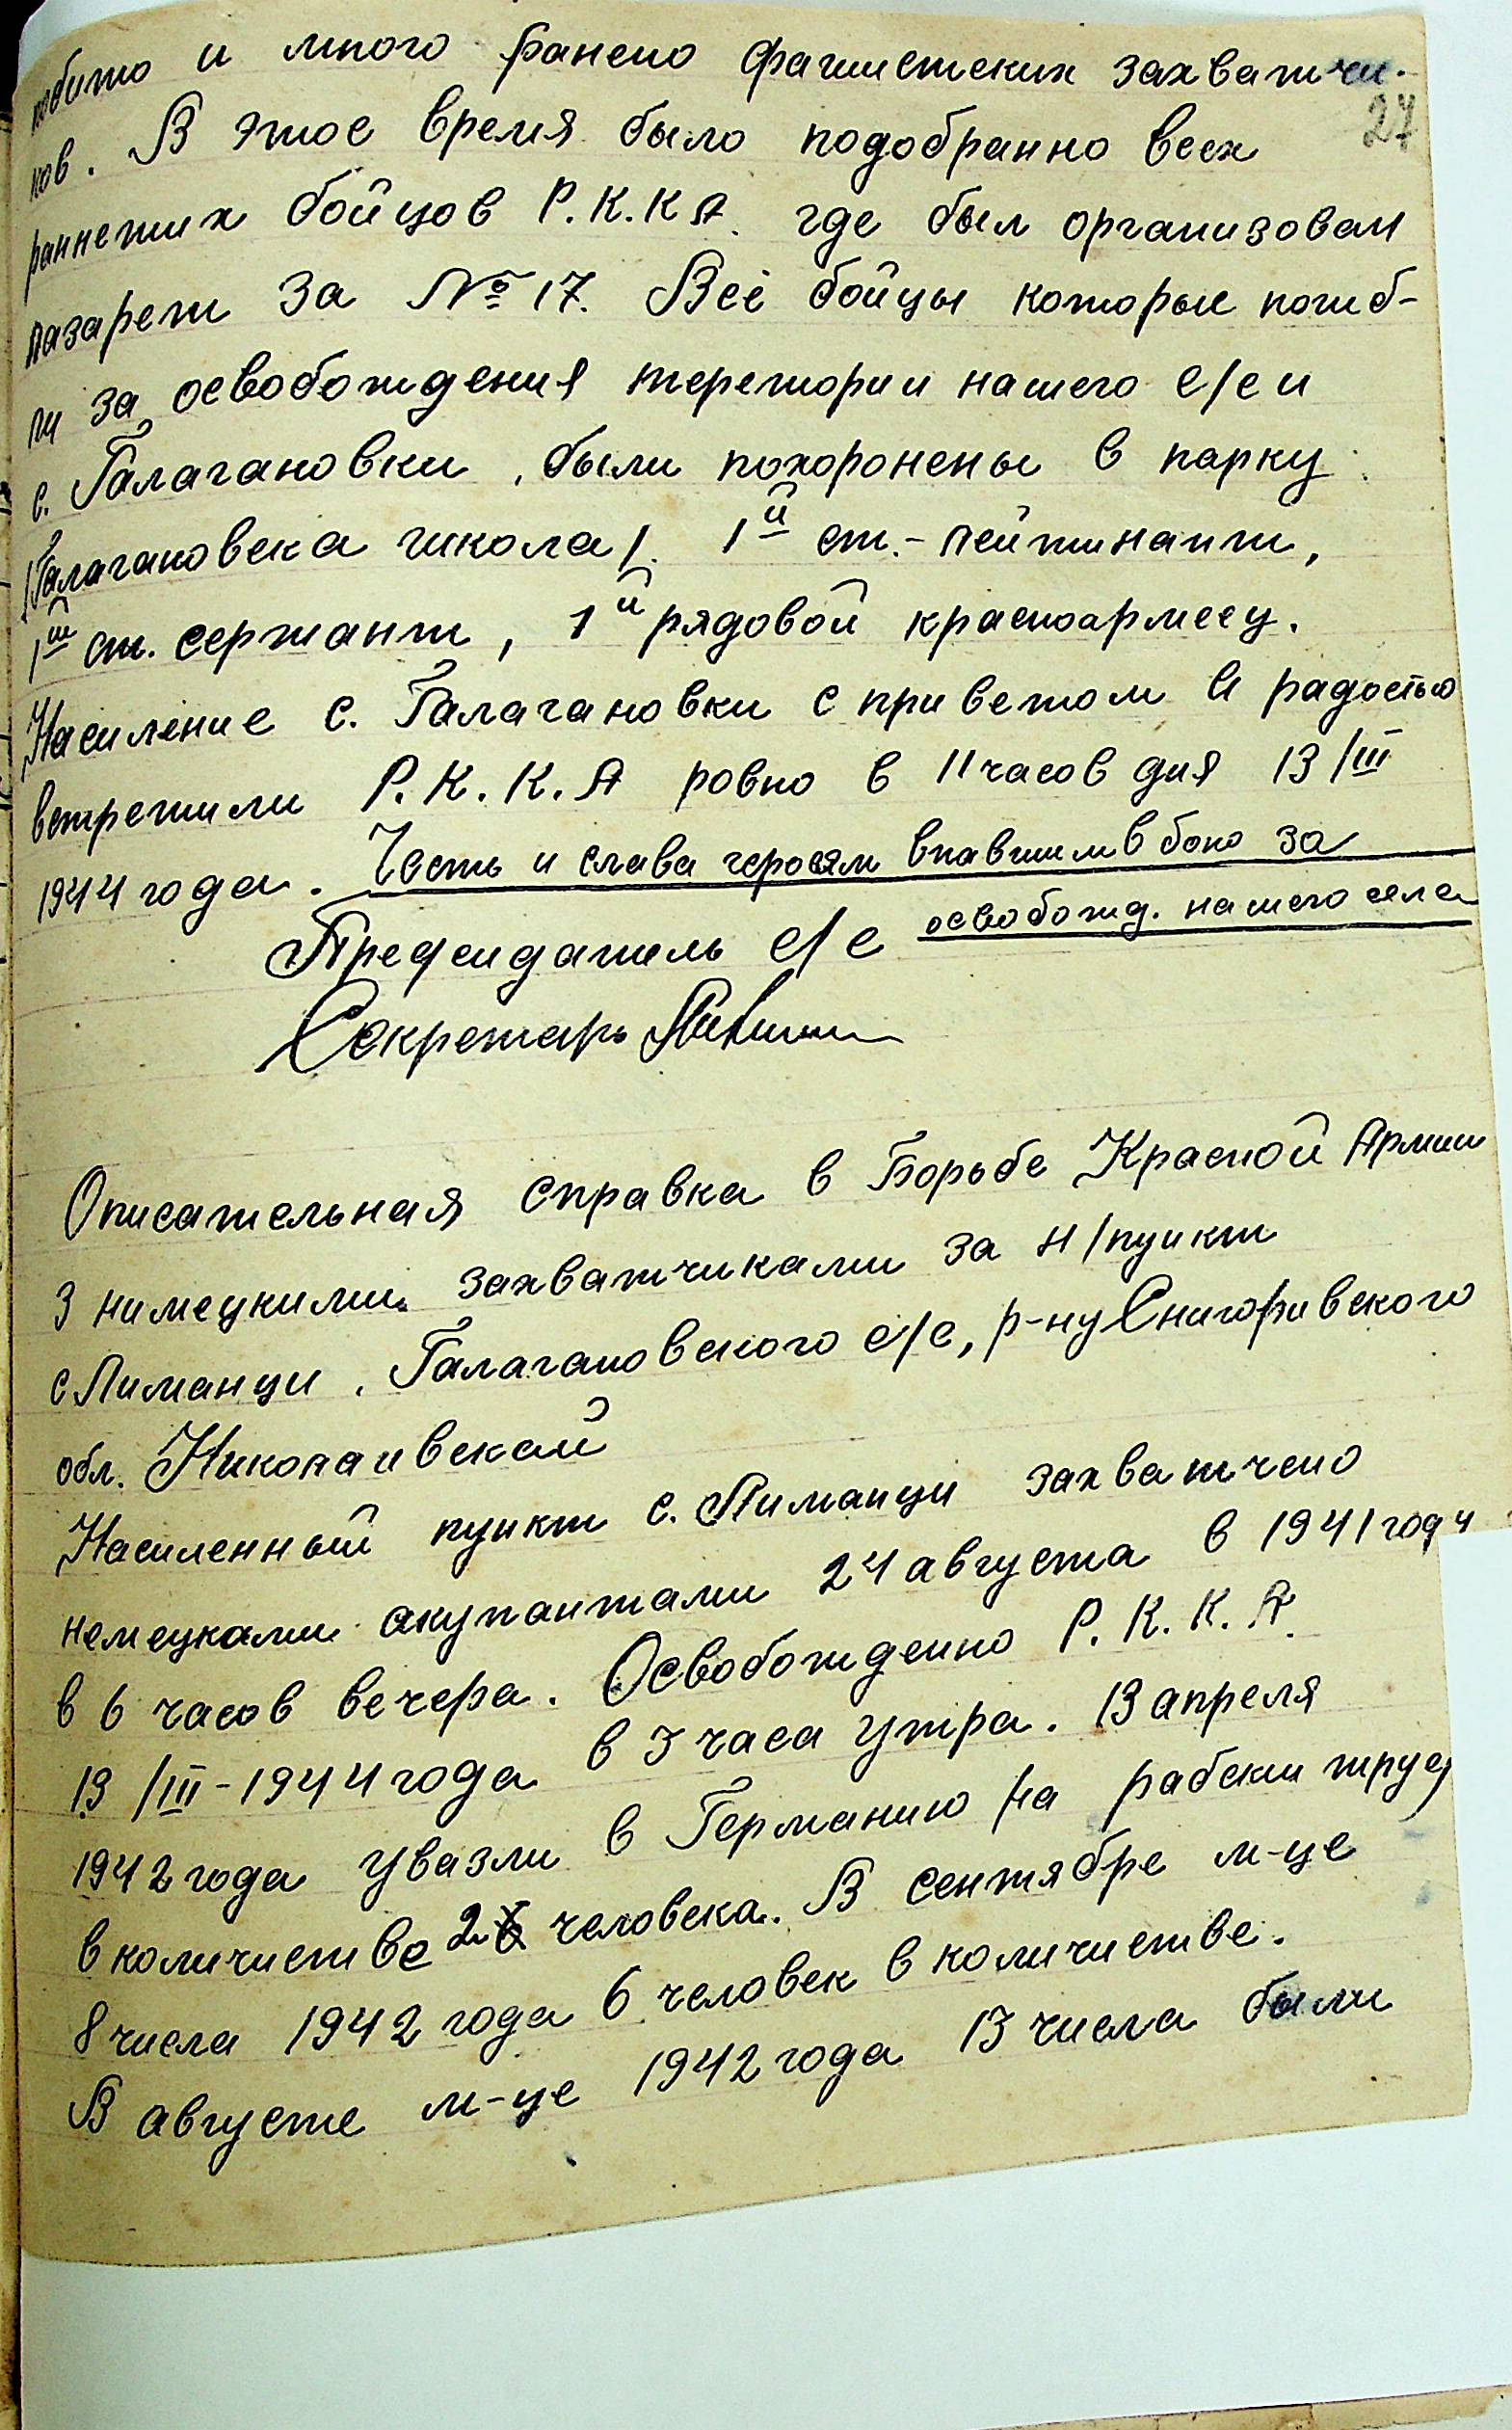 побито и много ранено фашистских захватчи-
27
ков. В этое время было подобранно всех
раннетих бойцов Р.К.КА. где был организован
лазарет за № 17. Все бойцы которые погиб-
ли за освобождения теретории нашего с/с и
с. Галагановки, были похоронены в парку
/Галагановска школа/. 1й ст.-лейтинант,
1й ст. сержант, 1й рядовой красноармеец.
Насиление с. Галагановки с приветом и радостью
встретили Р.К.К.А ровно в 11 часов дня 13/III
1944 года. Честь и слава героям впавшим в бою за
освобожд. нашего села
Председатель с/с
Секретарь
Описательная справка в Борьбе Красной Армии
з нимецкими захватчиками за н/пункт
с Лиманци, Галагановского с/с, р-ну Снигоривского
обл. Николаивской
Насиленный пункт с. Лиманци захватчено
немецками акупантами 24 августа в 1941 году
в 6 часов вечера. Освобожденно Р.К.К.А.
13/III-1944 года в 3 часа утра. 13 апреля
1942 года увазли в Германию на рабски труд
в количистве 2 человека. В сентябре м-це
8 числа 1942 года 6 человек в количистве.
В августе м-це 1942 года 13 числа были